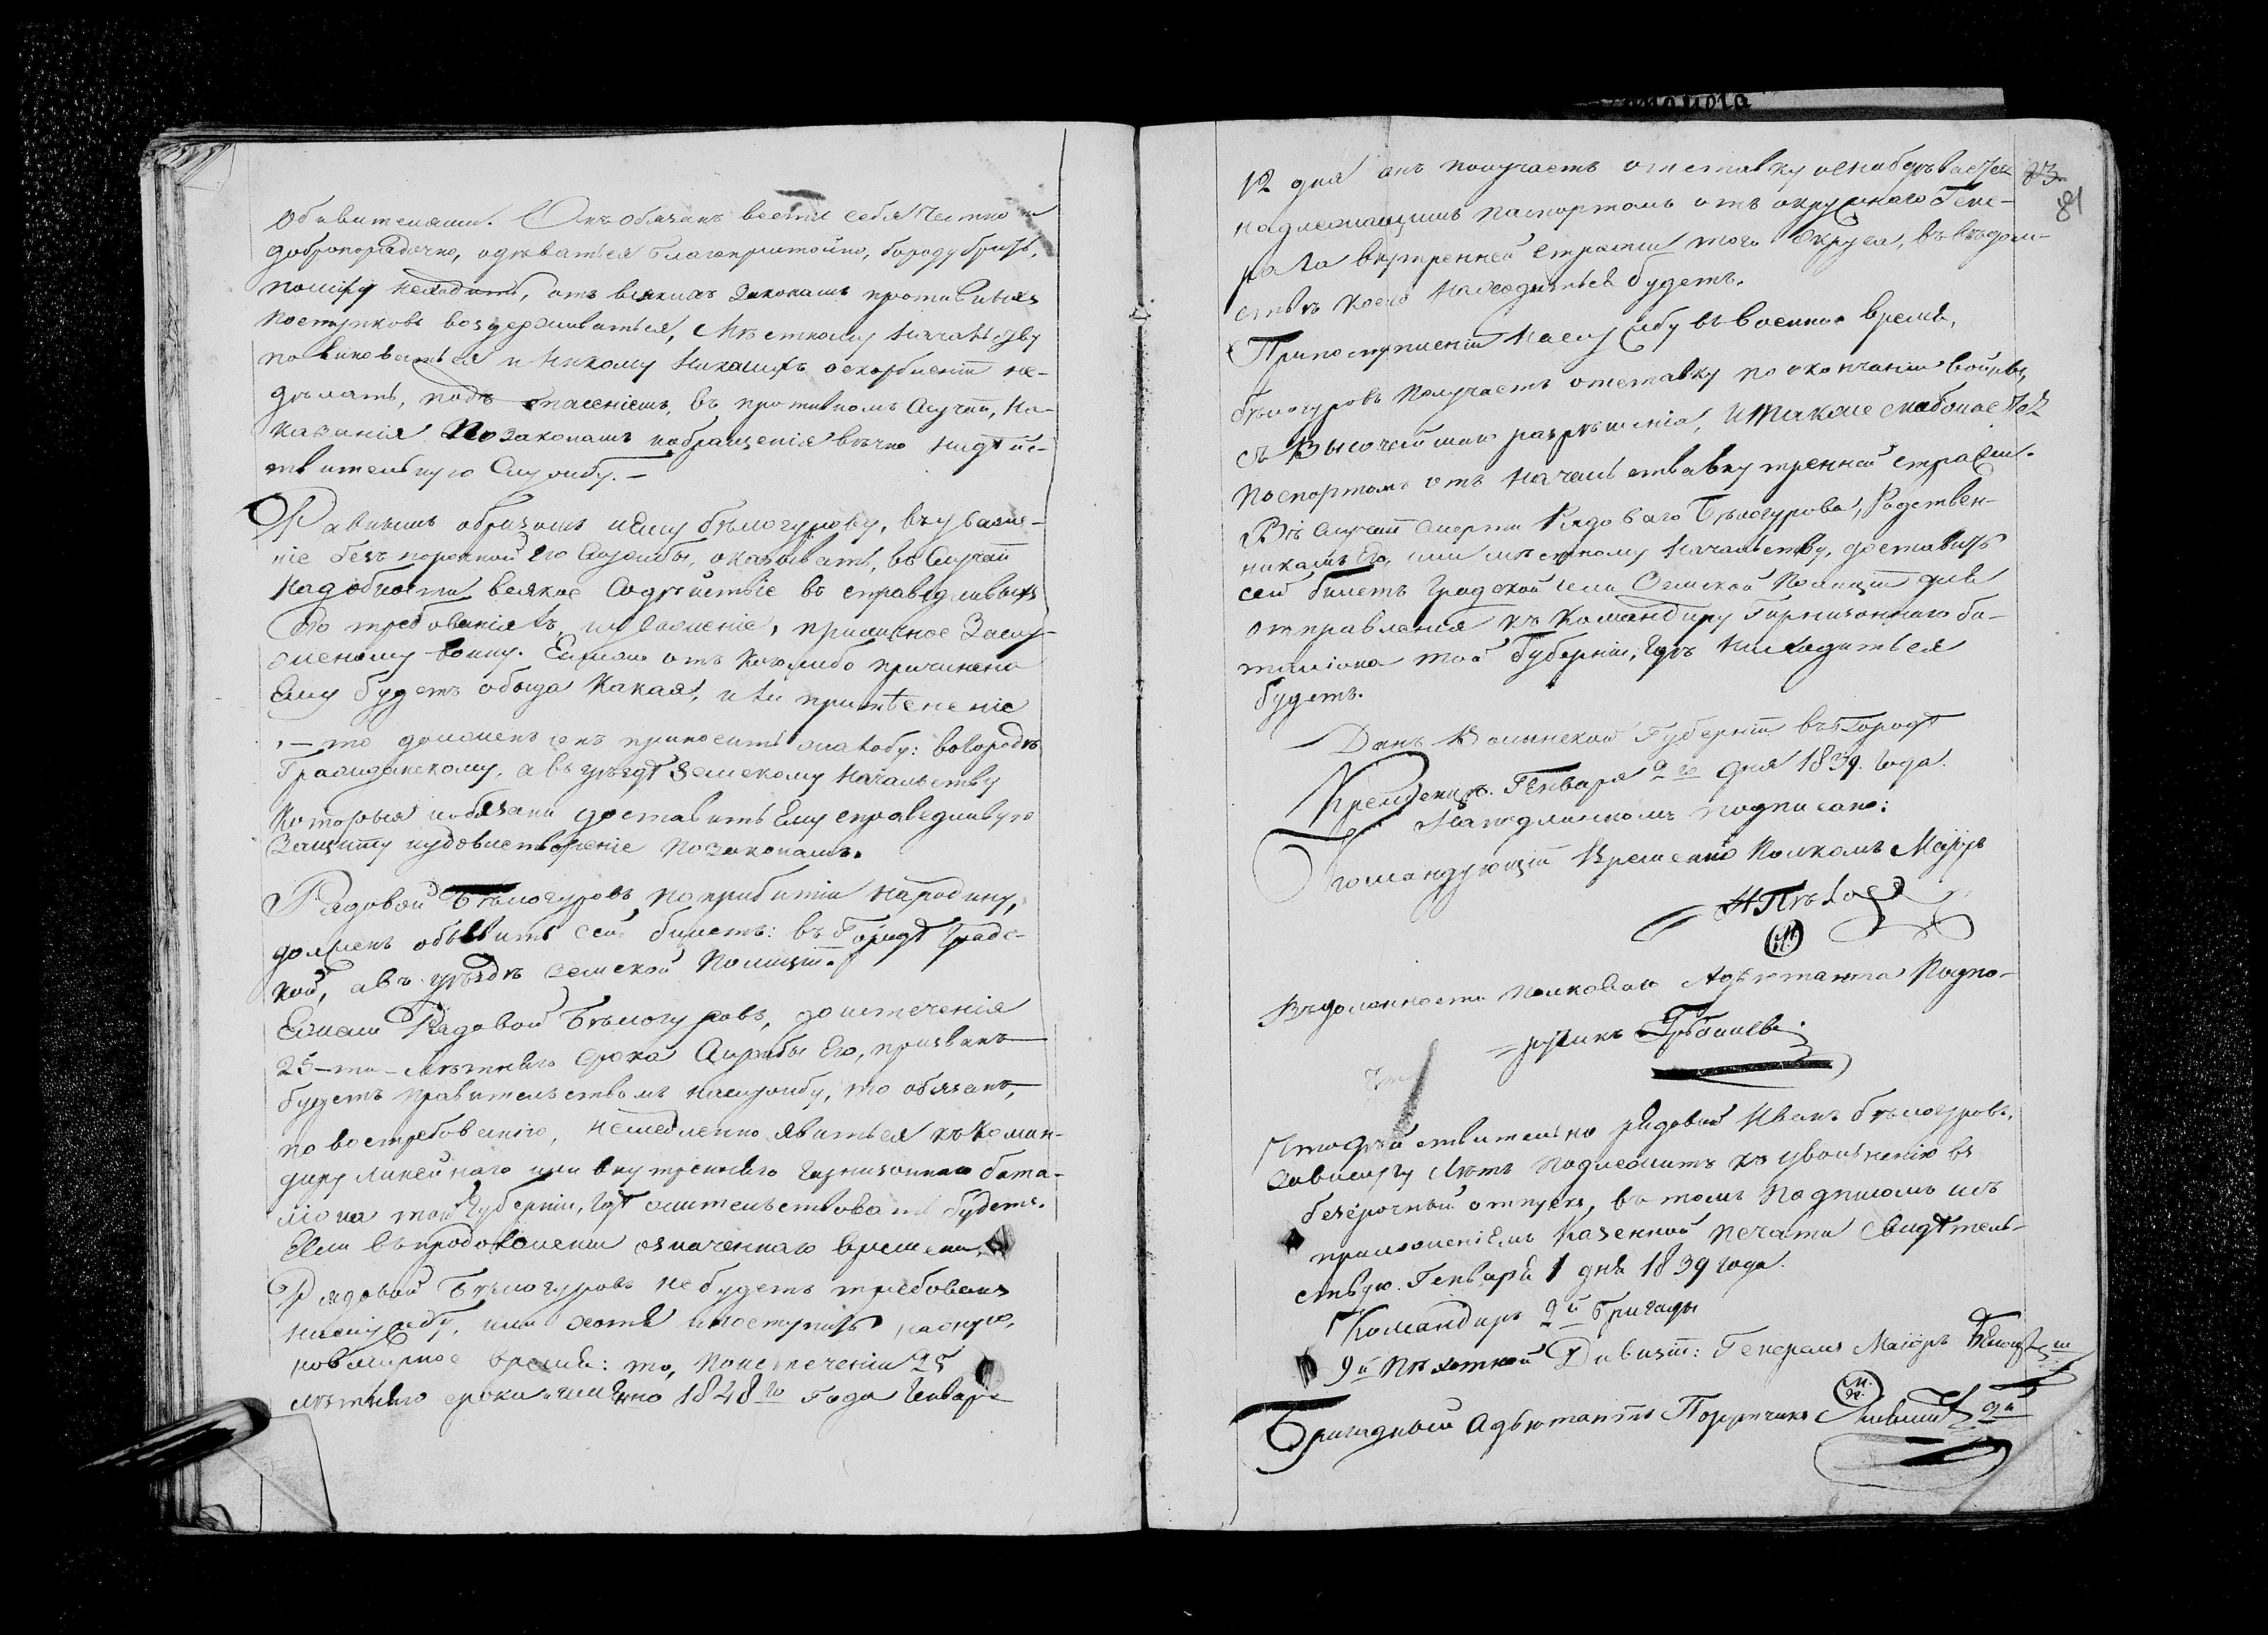 обывателями. Онъ обязанъ вести себя честно и
добропорядочно, одѣваться благопристойно, бороду брить,
помиру неходить, отъ всякихъ законамъ противныхъ
поступковъ воздерживаться, Мѣстному Начальству
повиноваться и никому никакихъ оскорбленій не-
дѣлать, подъ опасеніемъ, въ противномъ случаѣ, на-
казанія по законамъ и обращенія вѣчно надѣйс-
твительную службу. –
Равнымъ образомъ иЕму бѣлогурову, въуваже-
ніе безпорочной его службы, оказывать, въ случаѣ
надобности всякое содѣйствіе въ справедливыхъ
Его требованіяхъ, и уваженіе, приличное заслу-
женому воину. Ежели отъ кого либо причинена
Ему будетъ обида какая, или притѣсненіе
, – то долженъ онъ приносить жалобу: вогородѣ
Гражданскому, авъ уѣздѣ Земскому начальству
которыя иобязаны доставить Ему справедливую
Защиту иудовлетвореніе по законамъ.
Рядовой Бѣлогуровъ поприбытіи народину,
долженъ объявить сей билетъ: въ Городѣ Градс-
кой, авъ уѣздѣ земской Полиціи.
Ежели Рядовой Бѣлогуровъ, доистеченія
25-ти-лѣтняго срока службы Его, призванъ
будетъ правительствомъ наслужбу, то обязанъ,
по востребованію, немедленно явиться къ Коман-
диру линейнаго или внутренняго гарнизоннаго бата-
ліона той Губерніи, гдѣ жительствовать будетъ.
Если въ продолженіи означеннаго времени
Рядовой Бѣлогуровъ небудетъ требованъ
наслужбу, или хотя ипоступитъ наоную,
новъмирное время: то, поистеченіи 25
лѣтняго срока имянно 1848го года Генваря
83
81
12 дня онъ получаетъ отставку иснабдѣвается
надлежащимъ паспортомъ отъ окружнаго Гене-
рала внутренней стражи того Округа, въ вѣдом-
ствѣ коего находиться будетъ.
Припоступленіи наслужбу въ военное время,
бѣлогуровъ получаетъ отставку по окончаніи войны,
съ Высочайшаго разрѣшенія, итакже снабжается
паспортомъ отъ начальства внутренней стражи.
Въ случаѣ смерти Рядоваго Бѣлогурова, Родствен-
никамъ Его, или мѣстному начальству, доставить
сей билетъ Градской или Земской Полиціи для
отправленія къ Командиру Гарнизоннаго ба-
таліона той Губерніи, гдѣ находиться
будетъ.
Данъ Волынской Губерніи въ Городѣ
Кременцѣ. Генваря 9го дня 1839. года.
Наподлинномъ подписано:
Командующій временно Полкомъ Маіоръ
М. П.
Въдолжности полковаго Адъютанта Подпо-
ручикъ
Что дѣйствительно рядовой Иванъ бѣлогуровъ,
завыслугу лѣтъ подлежитъ къ увольненію въ
безсрочный отпускъ, въ томъ подписомъ исъ
приложеніемъ Казенной печати свидѣтель-
ствую. Генваря 1 дня 1839 года.
Командиръ 2й Бригады
9й Пѣхотной Дивизіи: Генералъ Маіоръ
М. П.
Бригадный Адъютантъ Поручикъ